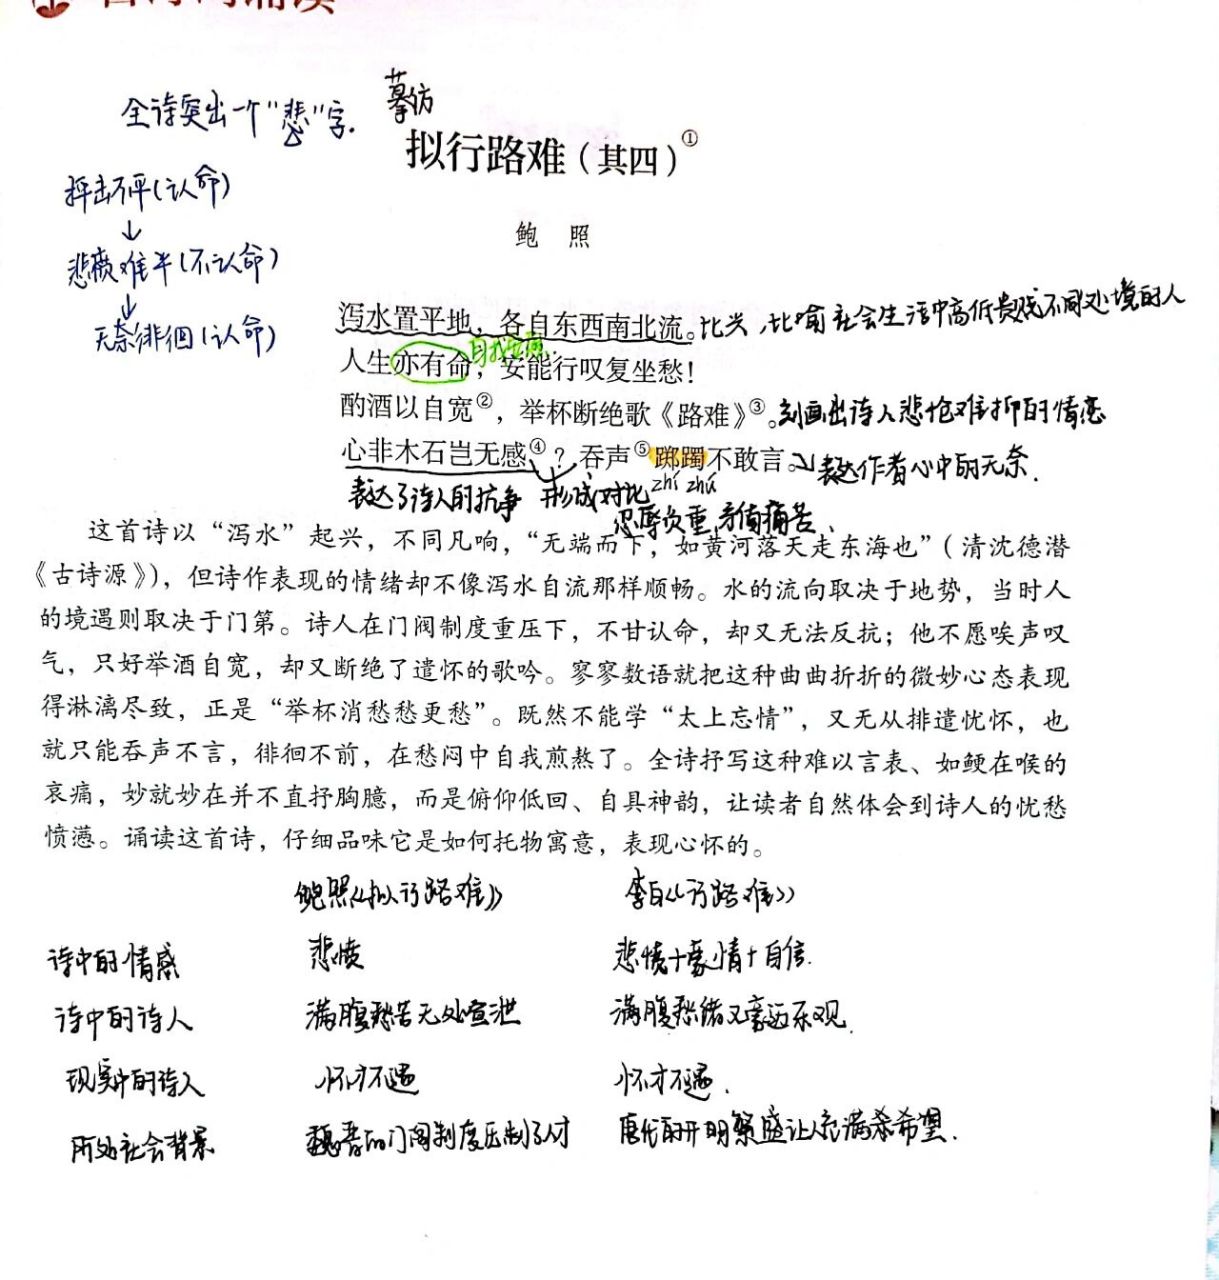 古诗词诵读
摹仿
全诗突出一个"悲"字.
拟行路难（其四）①
抨击不平(认命)
↓
悲愤难平(不认命)
↓
无奈徘徊(认命)
鲍 照
泻水置平地，各自东西南北流。比兴,比喻社会生活中高低贵贱不同处境的人
人生亦有命，安能行叹复坐愁！
自我安慰.
酌酒以自宽②，举杯断绝歌《路难》③。刻画出诗人悲怆难抑的情态
心非木石岂无感④？吞声⑤踯躅不敢言。表达作者心中的无奈.
zhí zhú
表达了诗人的抗争 形成对比
忍辱负重,矛盾痛苦、
这首诗以“泻水”起兴，不同凡响，“无端而下，如黄河落天走东海也”（清沈德潜
《古诗源》），但诗作表现的情绪却不像泻水自流那样顺畅。水的流向取决于地势，当时人
的境遇则取决于门第。诗人在门阀制度重压下，不甘认命，却又无法反抗；他不愿唉声叹
气，只好举酒自宽，却又断绝了遣怀的歌吟。寥寥数语就把这种曲曲折折的微妙心态表现
得淋漓尽致，正是“举杯消愁愁更愁”。既然不能学“太上忘情”，又无从排遣忧怀，也
就只能吞声不言，徘徊不前，在愁闷中自我煎熬了。全诗抒写这种难以言表、如鲠在喉的
哀痛，妙就妙在并不直抒胸臆，而是俯仰低回、自具神韵，让读者自然体会到诗人的忧愁
愤懑。诵读这首诗，仔细品味它是如何托物寓意，表现心怀的。
鲍照《拟行路难》 李白《行路难》
诗中的情感 悲愤 悲愤+豪情+自信.
诗中的诗人 满腹愁苦无处宣泄 满腹愁绪又豪迈乐观.
现实中的诗人 怀才不遇 怀才不遇.
所处社会背景 魏晋的门阀制度压制了人才 唐代的开明繁盛让人充满希望.